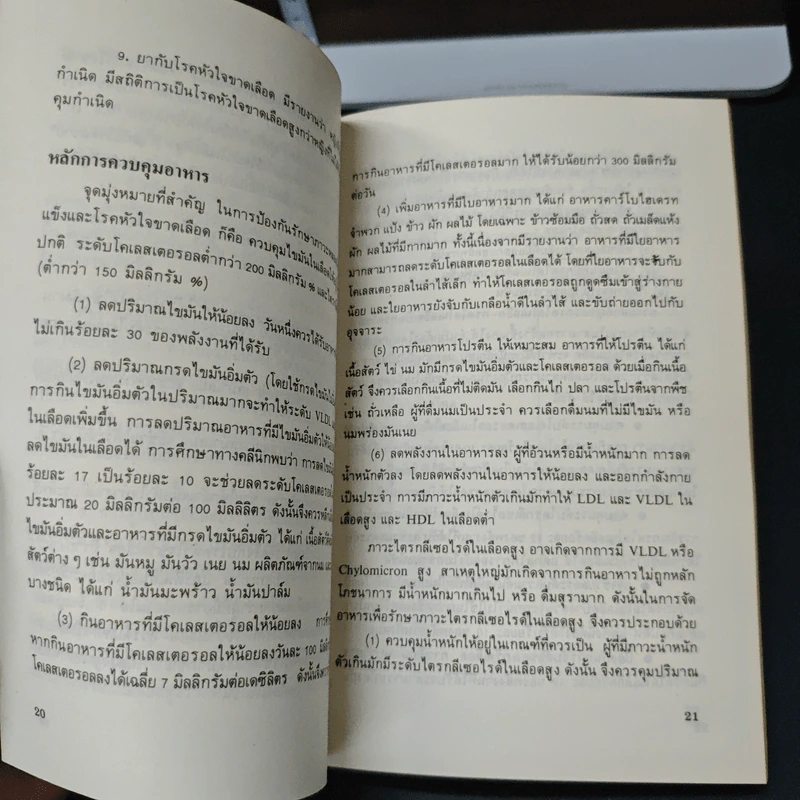 9. ยากับโรคหัวใจขาดเลือด มีรายงานว่า
กำเนิด มีสถิติการเป็นโรคหัวใจขาดเลือดสูงกว่าหญิง
คุมกำเนิด
หลักการควบคุมอาหาร
จุดมุ่งหมายที่สำคัญ ในการป้องกันรักษาภาวะ
แข็งและโรคหัวใจขาดเลือด ก็คือ ควบคุมไขมันในเลือด
ปกติ ระดับโคเลสเตอรอลต่ำกว่า 200 มิลลิกรัม %
(ต่ำกว่า 150 มิลลิกรัม %)
(1) ลดปริมาณไขมันให้น้อยลง วันหนึ่งควรได้รับ
ไม่เกินร้อยละ 30 ของพลังงานที่ได้รับ
(2) ลดปริมาณกรดไขมันอิ่มตัว (โดยใช้กรดไขมัน
การกินไขมันอิ่มตัวในปริมาณมากจะทำให้ระดับ VLDL
ในเลือดเพิ่มขึ้น การลดปริมาณอาหารที่มีไขมันอิ่มตัวให้
ลดไขมันในเลือดได้ การศึกษาทางคลีนิกพบว่า การลด
ร้อยละ 17 เป็นร้อยละ 10 จะช่วยลดระดับโคเลสเตอรอล
ประมาณ 20 มิลลิกรัมต่อ 100 มิลลิลิตร ดังนั้นจึงควร
ไขมันอิ่มตัวและอาหารที่มีกรดไขมันอิ่มตัว ได้แก่ เนื้อสัตว์
สัตว์ต่าง ๆ เช่น มันหมู มันวัว เนย นม ผลิตภัณฑ์จากนม
บางชนิด ได้แก่ น้ำมันมะพร้าว น้ำมันปาล์ม
(3) กินอาหารที่มีโคเลสเตอรอลให้น้อยลง
หากกินอาหารที่มีโคเลสเตอรอลให้น้อยลงวันละ 100
โคเลสเตอรอลลงได้เฉลี่ย 7 มิลลิกรัมต่อเดซิลิตร ดังนั้นจึง
20
การกินอาหารที่มีโคเลสเตอรอลมาก ให้ได้รับน้อยกว่า 300 มิลลิกรัม
ต่อวัน
(4) เพิ่มอาหารที่มีใบอาหารมาก ได้แก่ อาหารคาร์โบไฮเดรท
จำพวก แป้ง ข้าว ผัก ผลไม้ โดยเฉพาะ ข้าวซ้อมมือ ถั่วสด ถั่วเมล็ดแห้ง
ผัก ผลไม้ที่มีกากมาก ทั้งนี้เนื่องจากมีรายงานว่า อาหารที่มีใยอาหาร
มากสามารถลดระดับโคเลสเตอรอลในเลือดได้ โดยที่ใยอาหารจะจับกับ
โคเลสเตอรอลในลำไส้เล็ก ทำให้โคเลสเตอรอลถูกดูดซึมเข้าสู่ร่างกาย
น้อย และใยอาหารยังจับกับเกลือน้ำดีในลำไส้ และขับถ่ายออกไปกับ
อุจจาระ
(5) การกินอาหารโปรตีน ให้เหมาะสม อาหารที่ให้โปรตีน ได้แก่
เนื้อสัตว์ ไข่ นม มักมีกรดไขมันอิ่มตัวและโคเลสเตอรอล ด้วยเมื่อกินเนื้อ
สัตว์ จึงควรเลือกกินเนื้อที่ไม่ติดมัน เลือกกินไก่ ปลา และโปรตีนจากพืช
เช่น ถั่วเหลือ ผู้ที่ดื่มนมเป็นประจำ ควรเลือกดื่มนมที่ไม่มีไขมัน หรือ
นมพร่องมันเนย
(6) ลดพลังงานในอาหารลง ผู้ที่อ้วนหรือมีน้ำหนักมาก การลด
น้ำหนักตัวลง โดยลดพลังงานในอาหารให้น้อยลง และออกกำลังกาย
เป็นประจำ การมีภาวะน้ำหนักตัวเกินมักทำให้ LDL และ VLDL ใน
เลือดสูง และ HDL ในเลือดต่ำ
ภาวะไตรกลีเซอไรด์ในเลือดสูง อาจเกิดจากการมี VLDL หรือ
Chylomicron สูง สาเหตุใหญ่มักเกิดจากการกินอาหารไม่ถูกหลัก
โภชนาการ มีน้ำหนักมากเกินไป หรือ ดื่มสุรามาก ดังนั้นในการจัด
อาหารเพื่อรักษาภาวะไตรกลีเซอไรด์ในเลือดสูง จึงควรประกอบด้วย
(1) ควบคุมน้ำหนักให้อยู่ในเกณฑ์ที่ควรเป็น ผู้ที่มีภาวะน้ำหนัก
ตัวเกินมักมีระดับไตรกลีเซอไรด์ในเลือดสูง ดังนั้น จึงควรคุมปริมาณ
21